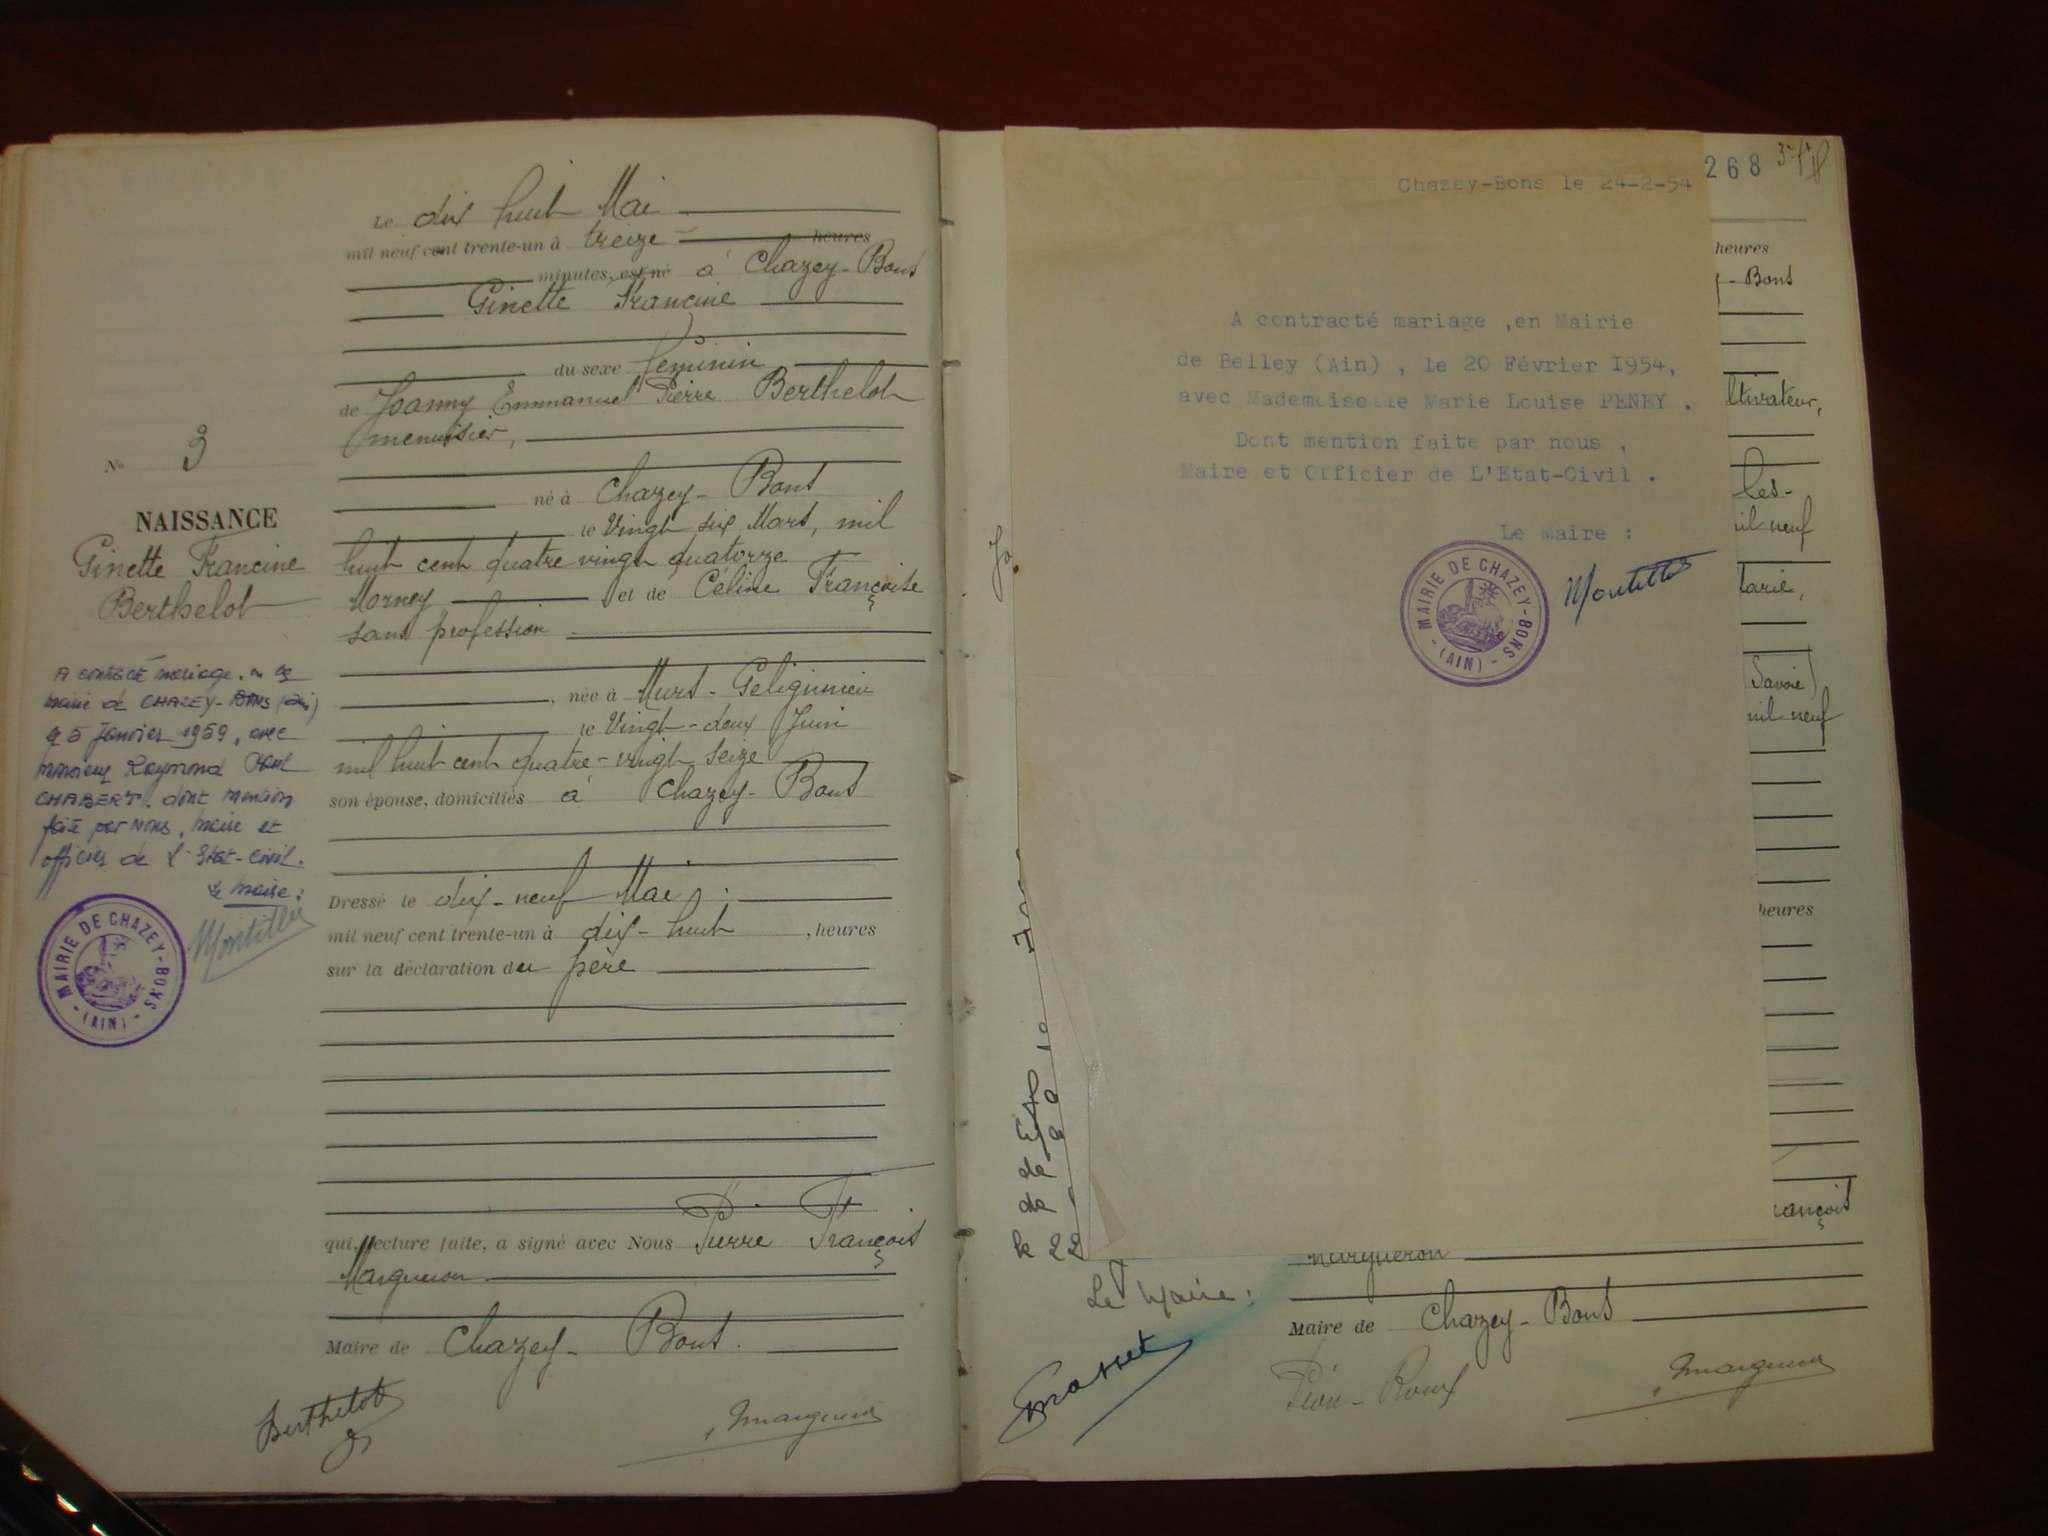 Le dix huit Mai
mil neuf cent trente-un à treize heures
minutes, est né à Chazey-Bons
Ginette Francine
du sexe féminin
de Joanny Emmanuel Pierre Berthelot
menuisier,
né à Chazey-Bons
le Vingt six Mars, mil
huit cent quatre vingt quatorze
et de Céline Françoise
sans profession
née à Murs-Gelignieu
le Vingt-deux Juin
mil huit cent quatre-vingt seize
son épouse, domiciliés à Chazey-Bons
Dressé le dix-neuf Mai
mil neuf cent trente-un à dix-huit, heures
sur la déclaration du père
qui, lecture faite, a signé avec Nous Pierre François
Margueron
Maire de Chazey-Bons.
Berthelot
Margueron
N° 3
NAISSANCE
Ginette Francine
Berthelot
A contracté mariage, en
mairie de CHAZEY-BONS (Ain)
5 Janvier 1959, avec
Monsieur Raymond
CHABERT. dont mention
faite par Nous, maire et
officier de l'Etat-Civil.
Le maire:
Montillet
MAIRIE DE CHAZEY-BONS
(AIN)
268
Chazey-Bons le 24-2-54
A contracté mariage ,en Mairie
de Belley (Ain) , le 20 Février I954,
avec Mademoiselle Marie Louise PENEY .
Dont mention faite par nous ,
Maire et Officier de L'Etat-Civil .
Le Maire :
Montillet
MAIRIE DE CHAZEY-BONS
(AIN)
heures
-Bons
ltivateur,
les-
mil neuf
Marie,
(Savoie)
mil neuf
heures
rançois
Margueron
Le Maire:
Maire de Chazey-Bons
Margueron